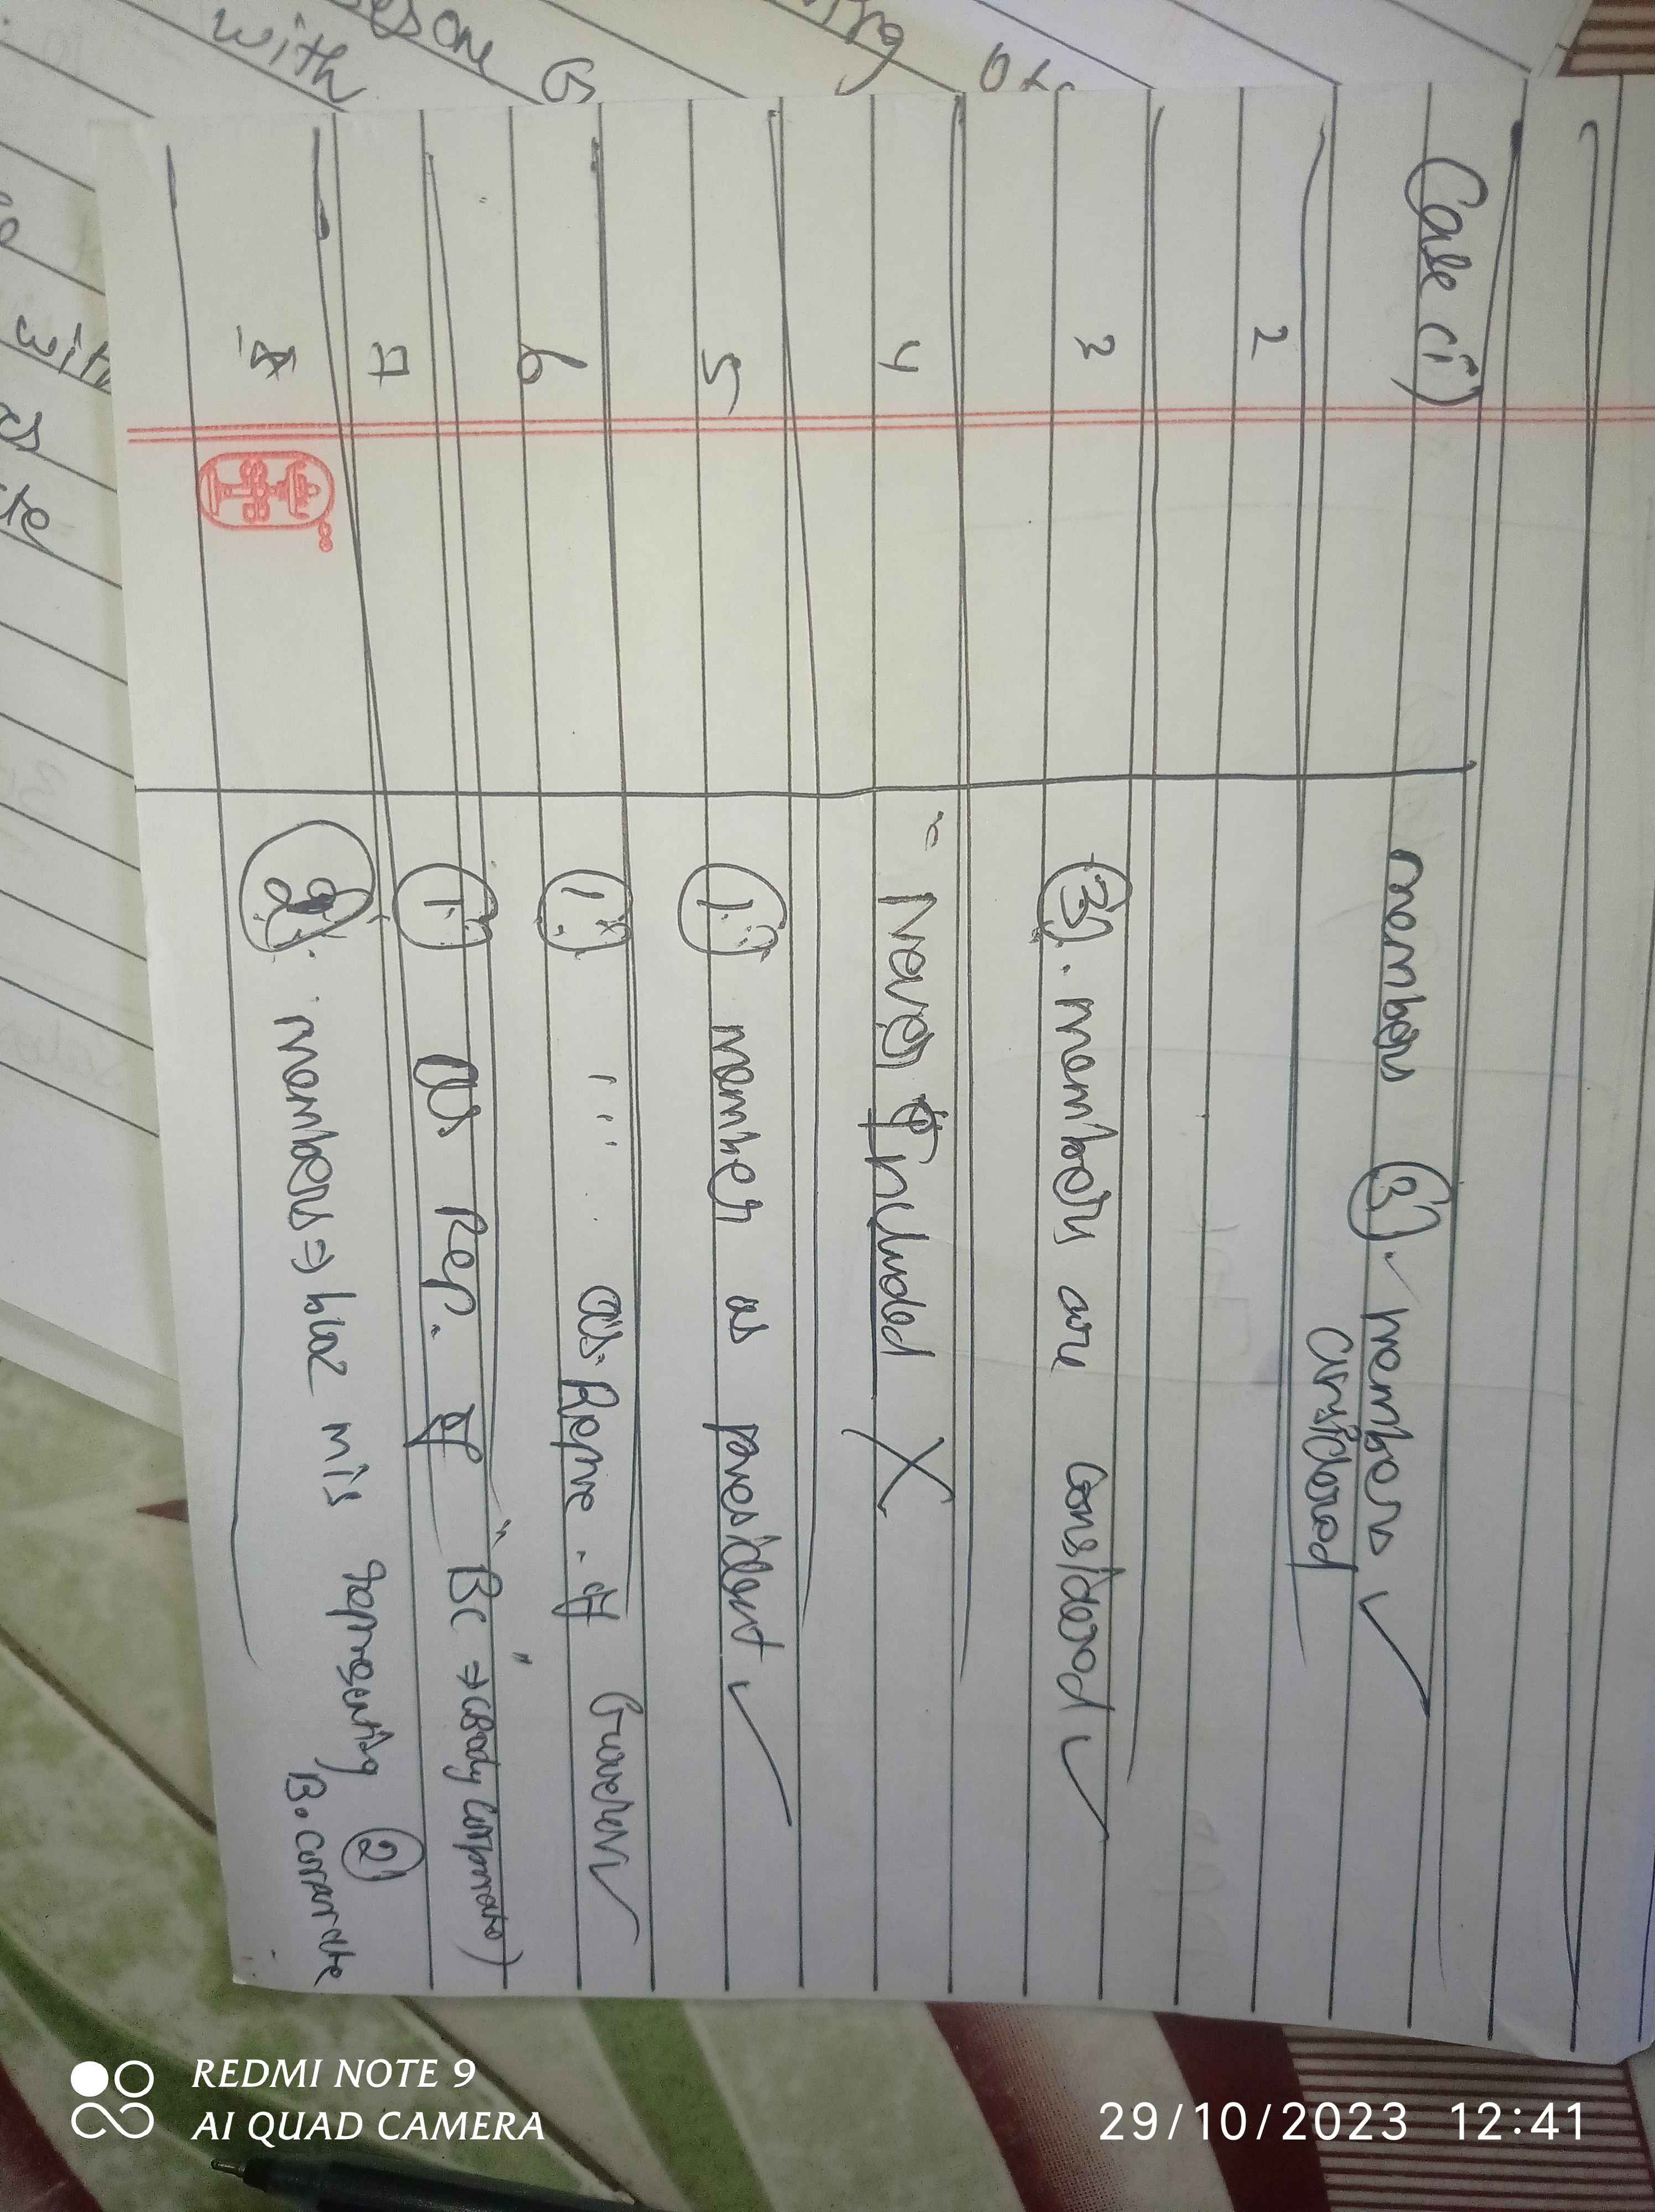 with
Case (i)
members (3). members ✓
considered
2
3
(3). members are considered ✓
4
- Never Included X
5
(1) member as president ✓
6
(1) " as. Repre. of Govern ✓
7
(1) as Rep. of "BC" ⇒ (Body Corporate)
8
members ⇒ bcoz m/s representing (2)
B. Corporate
REDMI NOTE 9
AI QUAD CAMERA
29/10/2023 12:41